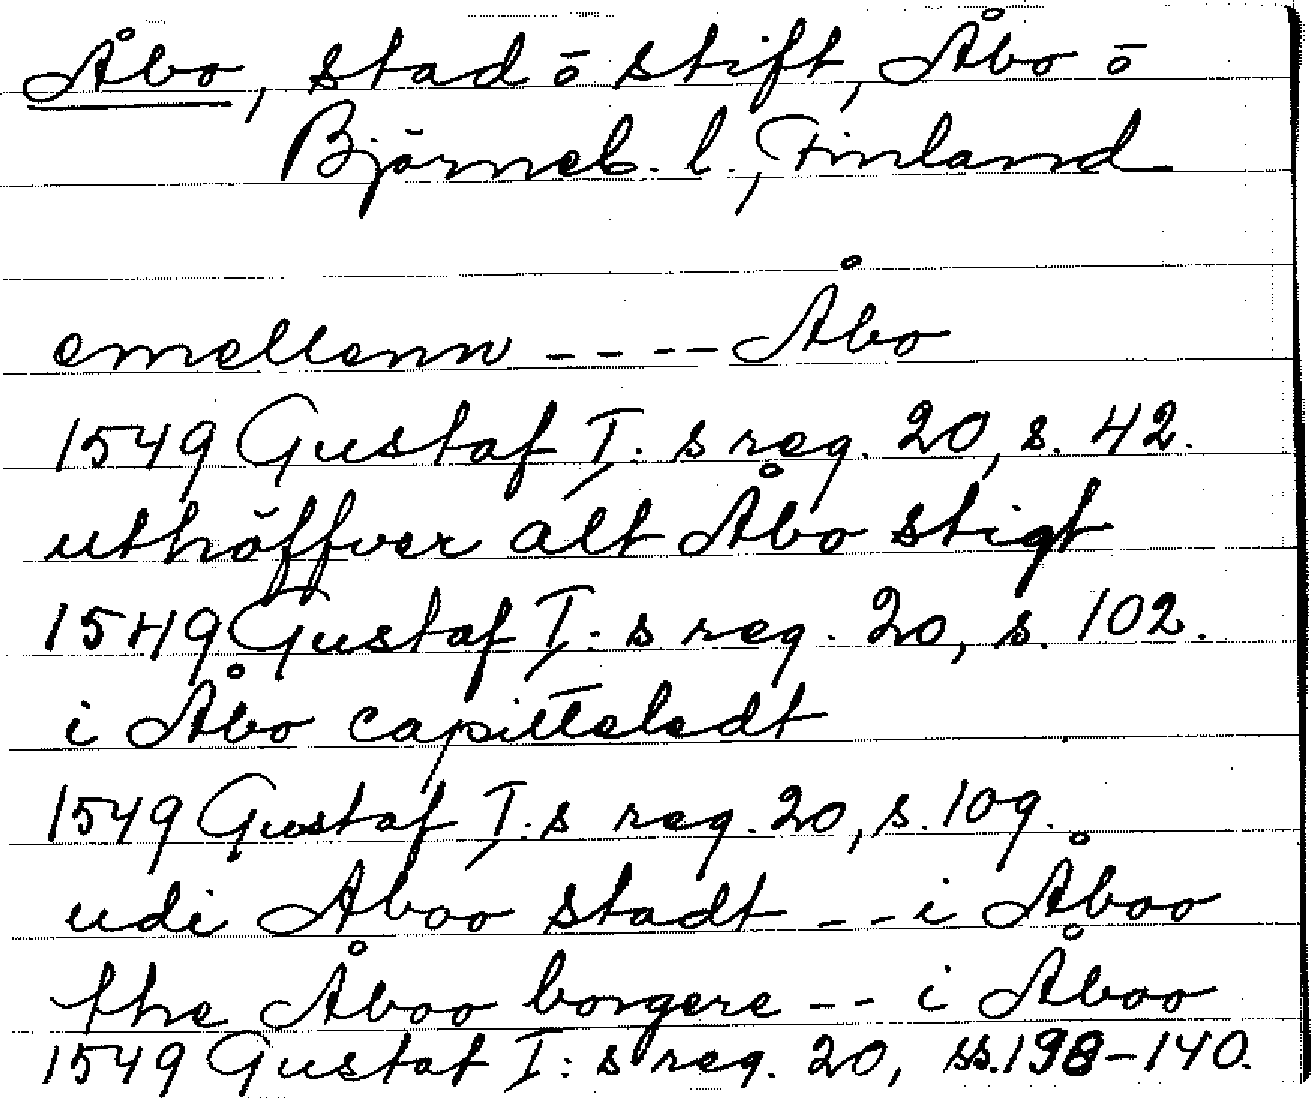 Åbo, stad ō stift, Åbo ō
Björneb. l., Finland
emellenn - - - - Åbo
1549 Gustaf I: s reg. 20, s. 42.
uthöffver alt Åbo stigt
1549 Gustaf I: s reg. 20, s. 102.
i Åbo capitteledt
1549 Gustaf I: s reg. 20, s. 109.
udi Aboo stadt - - i Åboo
the Åboo borgere - - i Åboo
1549 Gustaf I: s reg. 20, ss. 198-140.